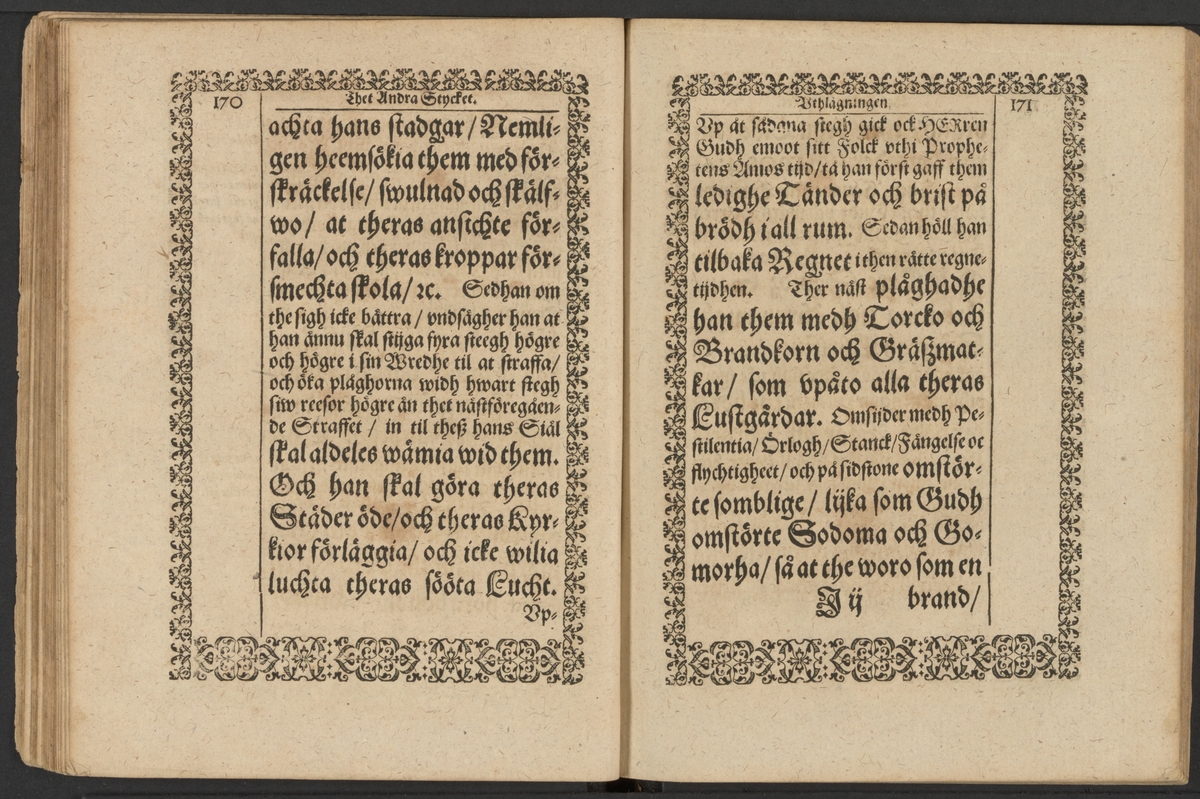 170
Thet Andra Stycket.
achta hans stadgar/ Nemli-
gen heemsökia them med för-
skräckelse/ swulnad och skälf-
wo/ at theras ansichte för-
falla/ och theras kroppar för-
smechta skola/ ꝛc. Sedhan om
the sigh icke bättra/ vndsägher han at
han ännu skal stijga fyra steegh högre
och högre i sin Wredhe til at straffa/
och öka plåghorna widh hwart stegh
siw reesor högre än thet nästföregåen-
de Straffet/ in til theß hans Siäl
skal aldeles wämia wid them.
Och han skal göra theras
Städer öde/ och theras Kyr-
kior förläggia/ och icke wilia
luchta theras sööta Lucht.
Vp-
Vthläggningen
171
Vp åt sådana stegh gick ock HERren
Gudh emoot sitt Folck vthi Prophe-
tens Amos tijd/ tå han först gaff them
ledighe Tänder och brist på
brödh i all rum. Sedan höll han
tilbaka Regnet i then rätte regne-
tijdhen. Ther näst plåghadhe
han them medh Torcko och
Brandkorn och Gräßmat-
kar/ som vpåto alla theras
Lustgårdar. Omsijder medh Pe-
stilentia/ Örlogh/ Stanck/ Fängelse oc
flychtigheet/ och på sidstone omstör-
te somblige/ lijka som Gudh
omstörte Sodoma och Go-
morha/ så at the woro som en
J ij brand/